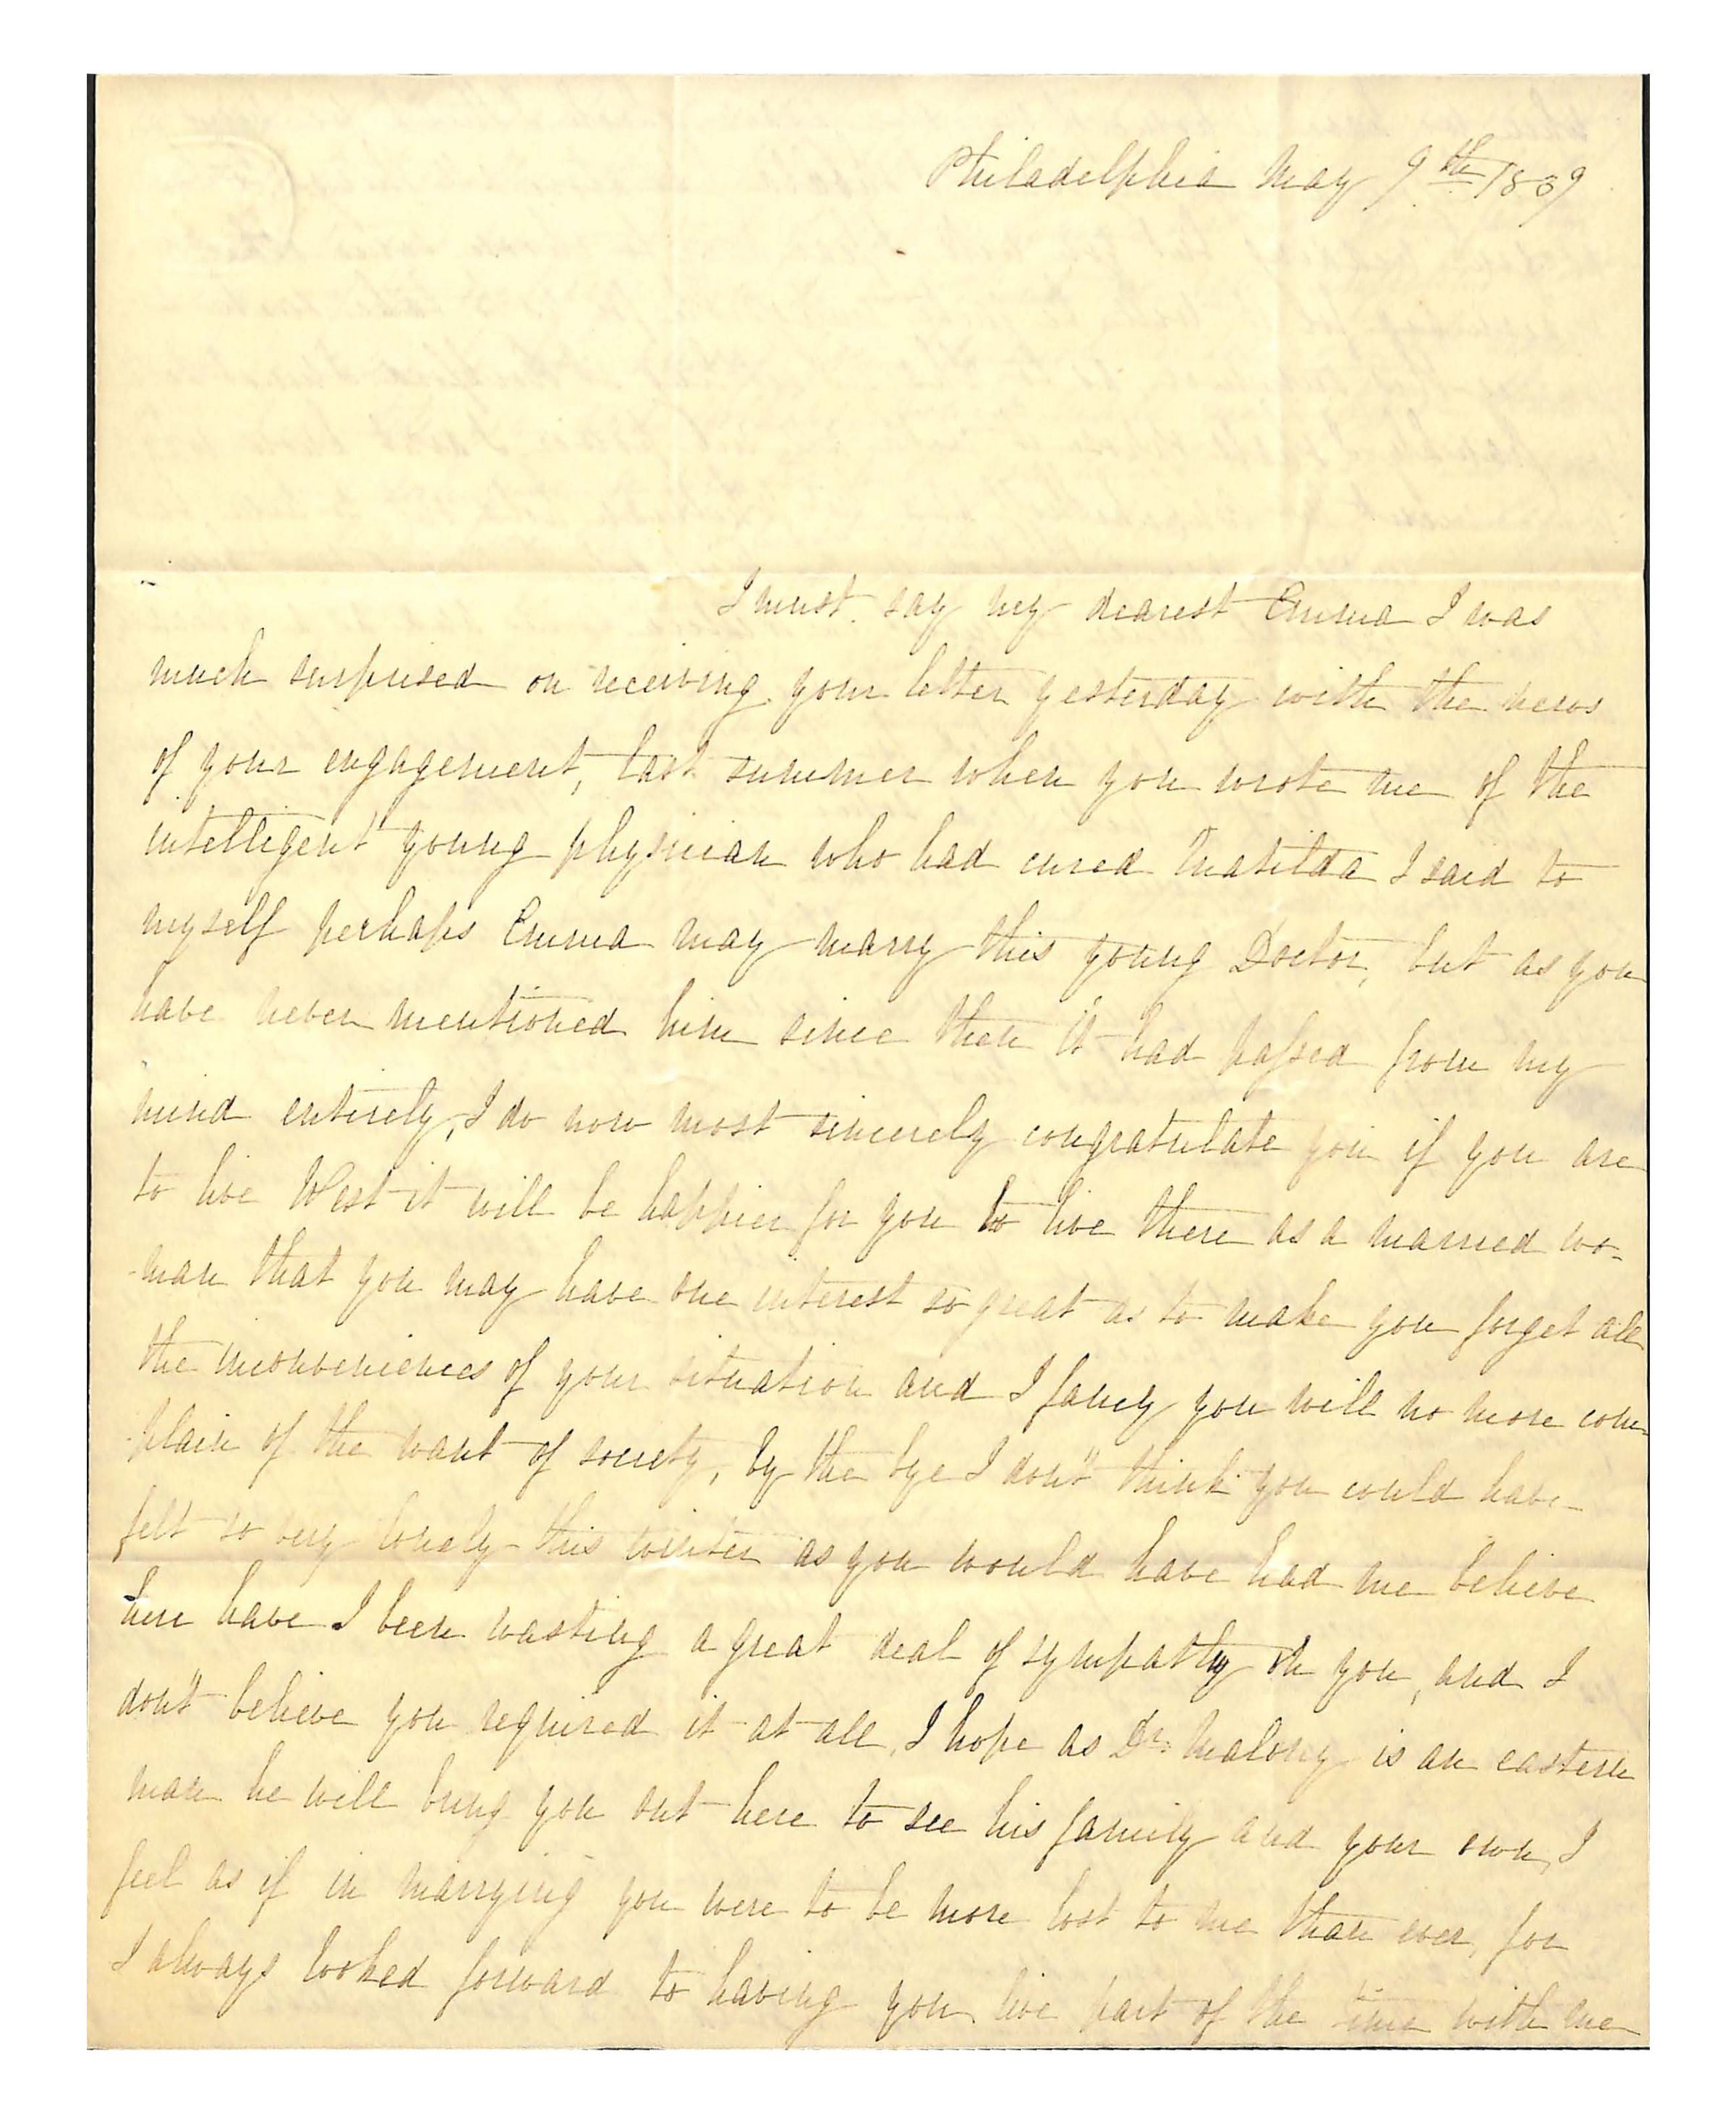 Philadelphia May 9th 1839
I must say my dearest Emma I was
much surprised on receiving your letter yesterday with the news
of your engagement, last summer when you wrote me of the
intelligent young physician who had cured Matilda I said to
myself perhaps Emma may marry this young Doctor, but as you
have never mentioned him since then it had passed from my
mind entirely, I do now most sincerely congratulate you if you are
to live West it will be happier for you to live there as a married wo-
-man that you may have one interest so great as to make you forget all
the inconveniences of your situation and I fancy you will no more com-
-plain of the want of society, by the bye I don't think you could have
felt so very lonely this winter as you would have had me believe
here have I been wasting a great deal of sympathy on you, and I
don't believe you required it at all, I hope as Dr. Malony is an eastern
man he will bring you out here to see his family and your own, I
feel as if in marrying you were to be more lost to me than ever, for
I always looked forward to having you live part of the time with me